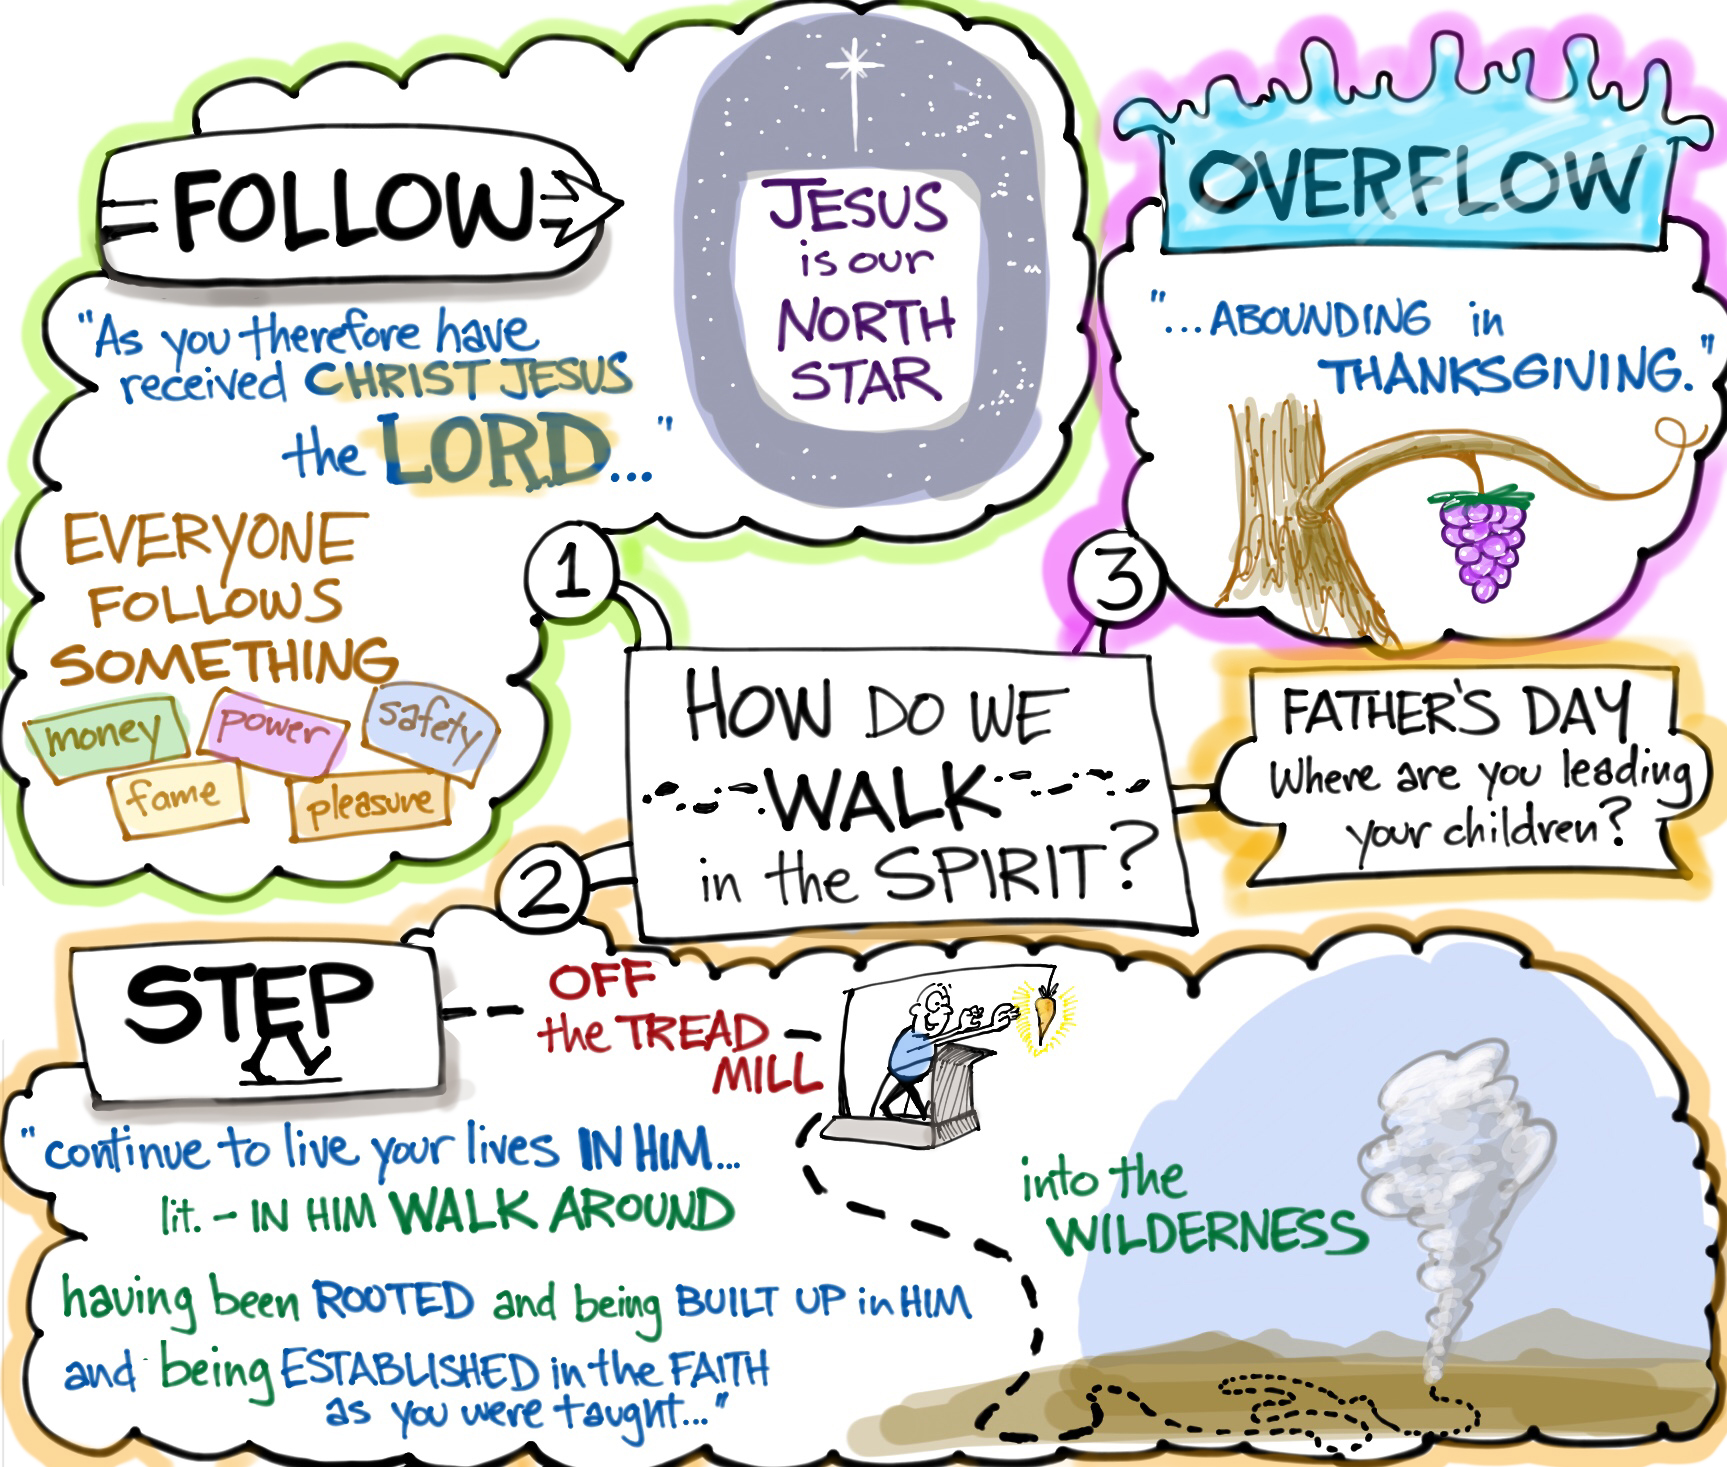 FOLLOW
"As you therefore have
received CHRIST JESUS
the LORD..."
JESUS
is our
NORTH
STAR
EVERYONE
FOLLOWS
SOMETHING
money
power
safety
fame
pleasure
1
HOW DO WE
WALK
in the SPIRIT?
2
STEP
OFF
the TREAD
MILL
"continue to live your lives IN HIM...
lit. - IN HIM WALK AROUND
having been ROOTED and being BUILT UP in HIM
and being ESTABLISHED in the FAITH
as you were taught..."
into the
WILDERNESS
3
OVERFLOW
"...ABOUNDING in
THANKSGIVING."
FATHER'S DAY
Where are you leading
your children?